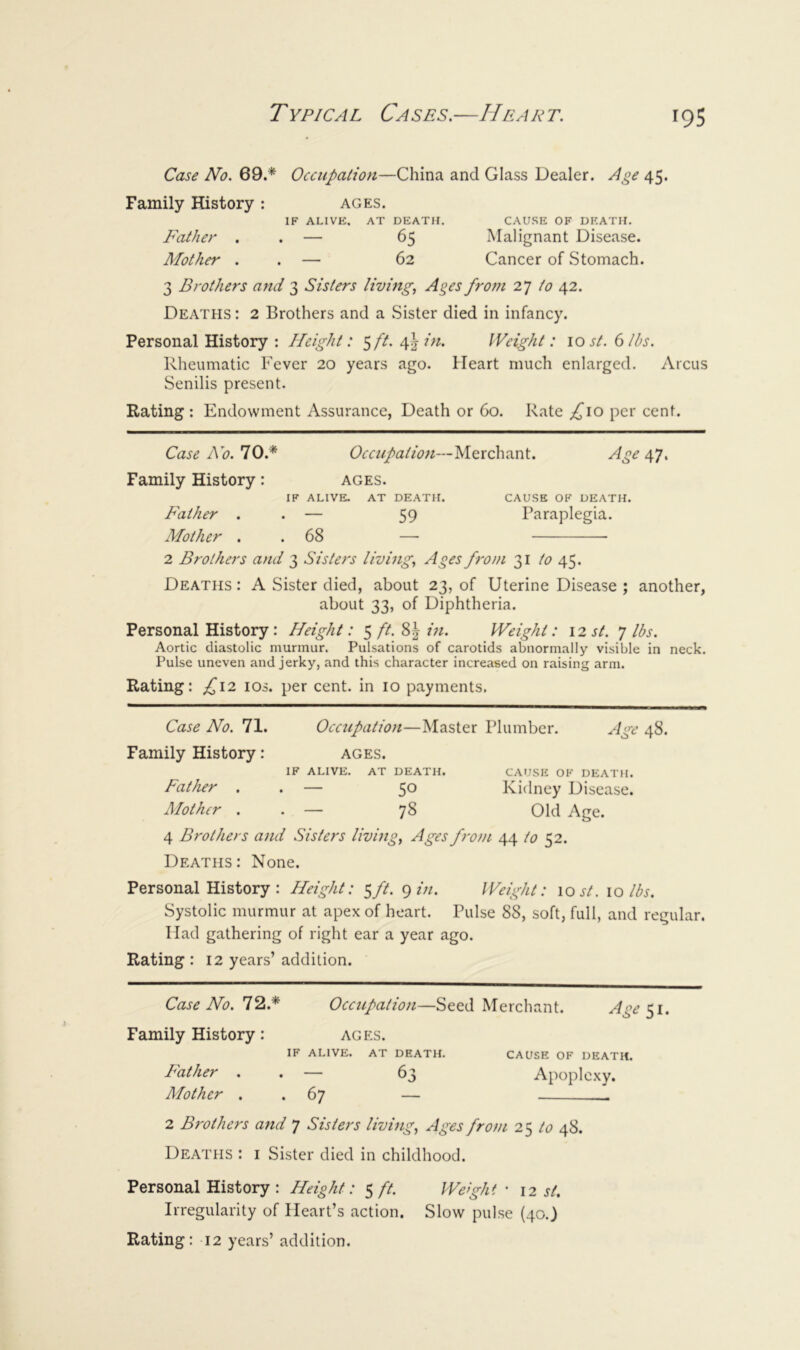 Typical Cases.—Heart. 195
Case No. 69.* Occupation—China and Glass Dealer. Age 45.
Family History : AGES.
IF ALIVE. AT DEATH. CAUSE OF DEATH.
Father . . — 65 Malignant Disease.
Mother . . — 62 Cancer of Stomach.
3 Brothers and 3 Sisters living, Ages from 27 to 42.
Deaths : 2 Brothers and a Sister died in infancy.
Personal History : Height : 5 ft. 4½ in. Weight : 10 st. 6 lbs.
Rheumatic Fever 20 years ago. Heart much enlarged. Arcus
Senilis present.
Rating : Endowment Assurance, Death or 60. Rate £10 per cent.
Case No. 70.* Occupation—Merchant. Age 47.
Family History : AGES.
IF ALIVE. AT DEATH. CAUSE OF DEATH.
Father . . — 59 Paraplegia.
Mother . . 68 — ———
2 Brothers and 3 Sisters living, Ages from 31 to 45.
Deaths : A Sister died, about 23, of Uterine Disease ; another,
about 33, of Diphtheria.
Personal History : Height : 5 ft. 8½ in. Weight : 12 st. 7 lbs.
Aortic diastolic murmur. Pulsations of carotids abnormally visible in neck.
Pulse uneven and jerky, and this character increased on raising arm.
Rating : £12 10s. per cent. in 10 payments.
Case No. 71. Occupation—Master Plumber. Age 48.
Family History : AGES.
IF ALIVE. AT DEATH. CAUSE OF DEATH.
Father . . — 50 Kidney Disease.
Mother . . — 78 Old Age.
4 Brothers and Sisters living, Ages from 44 to 52.
Deaths : None.
Personal History : Height : 5 ft. 9 in. Weight : 10 st. 10 lbs.
Systolic murmur at apex of heart. Pulse 88, soft, full, and regular.
Had gathering of right ear a year ago.
Rating : 12 years' addition.
Case No. 72.* Occupation—Seed Merchant. Age 51.
Family History : AGES.
IF ALIVE. AT DEATH. CAUSE OF DEATH.
Father . . — 63 Apoplexy.
Mother . . 67 — ———
2 Brothers and 7 Sisters living, Ages from 25 to 48.
Deaths : 1 Sister died in childhood.
Personal History : Height : 5 ft. Weight · 12 st.
Irregularity of Heart's action. Slow pulse (40.)
Rating : 12 years' addition.